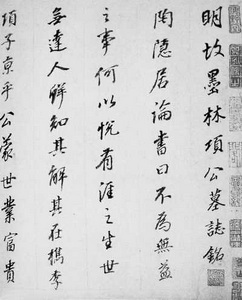 明故墨林項公墓誌銘
陶隱居論書曰不為無益
之事何以悅有涯之生世
無達人鮮知其解其在檇李
項子京乎公蒙世業富貴